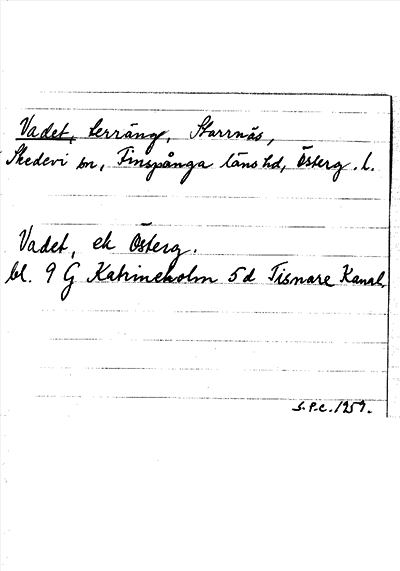 Vadet, terräng, Starrnäs,
Skedevi sn, Finspånga läns hd, Österg. l.
Vadet, ek Österg.
bl. 9 G Katrineholm 5d Tisnare Kanal
S.P.C. 1959.